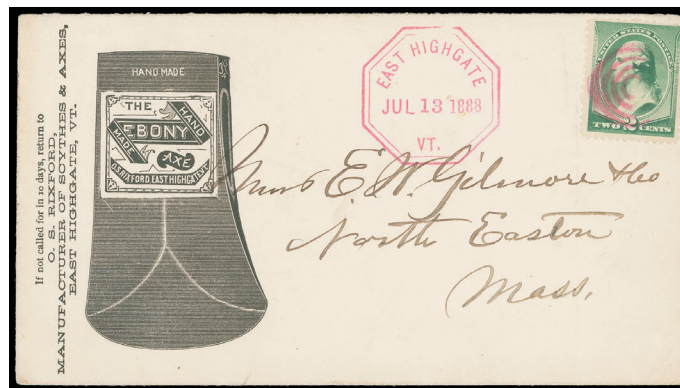 If not called for in 10 days, return to
O. S. RIXFORD,
MANUFACTURER OF SCYTHES & AXES,
EAST HIGHGATE, VT.
HAND MADE
THE
HAND
EBONY
MADE
AXE
O.S. RIXFORD, EAST HIGHGATE, V
EAST HIGHGATE
JUL 13 1888
VT.
UNITED STATES POSTAGE
2
TWO CENTS
E. W. Gilmore & Co
North Easton
Mass.